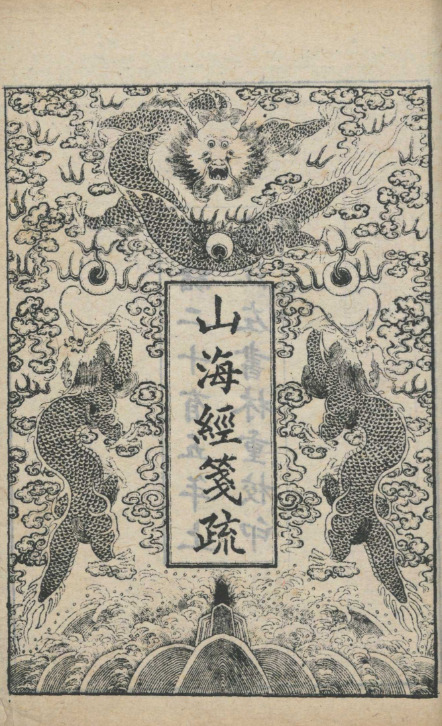 山海經箋疏